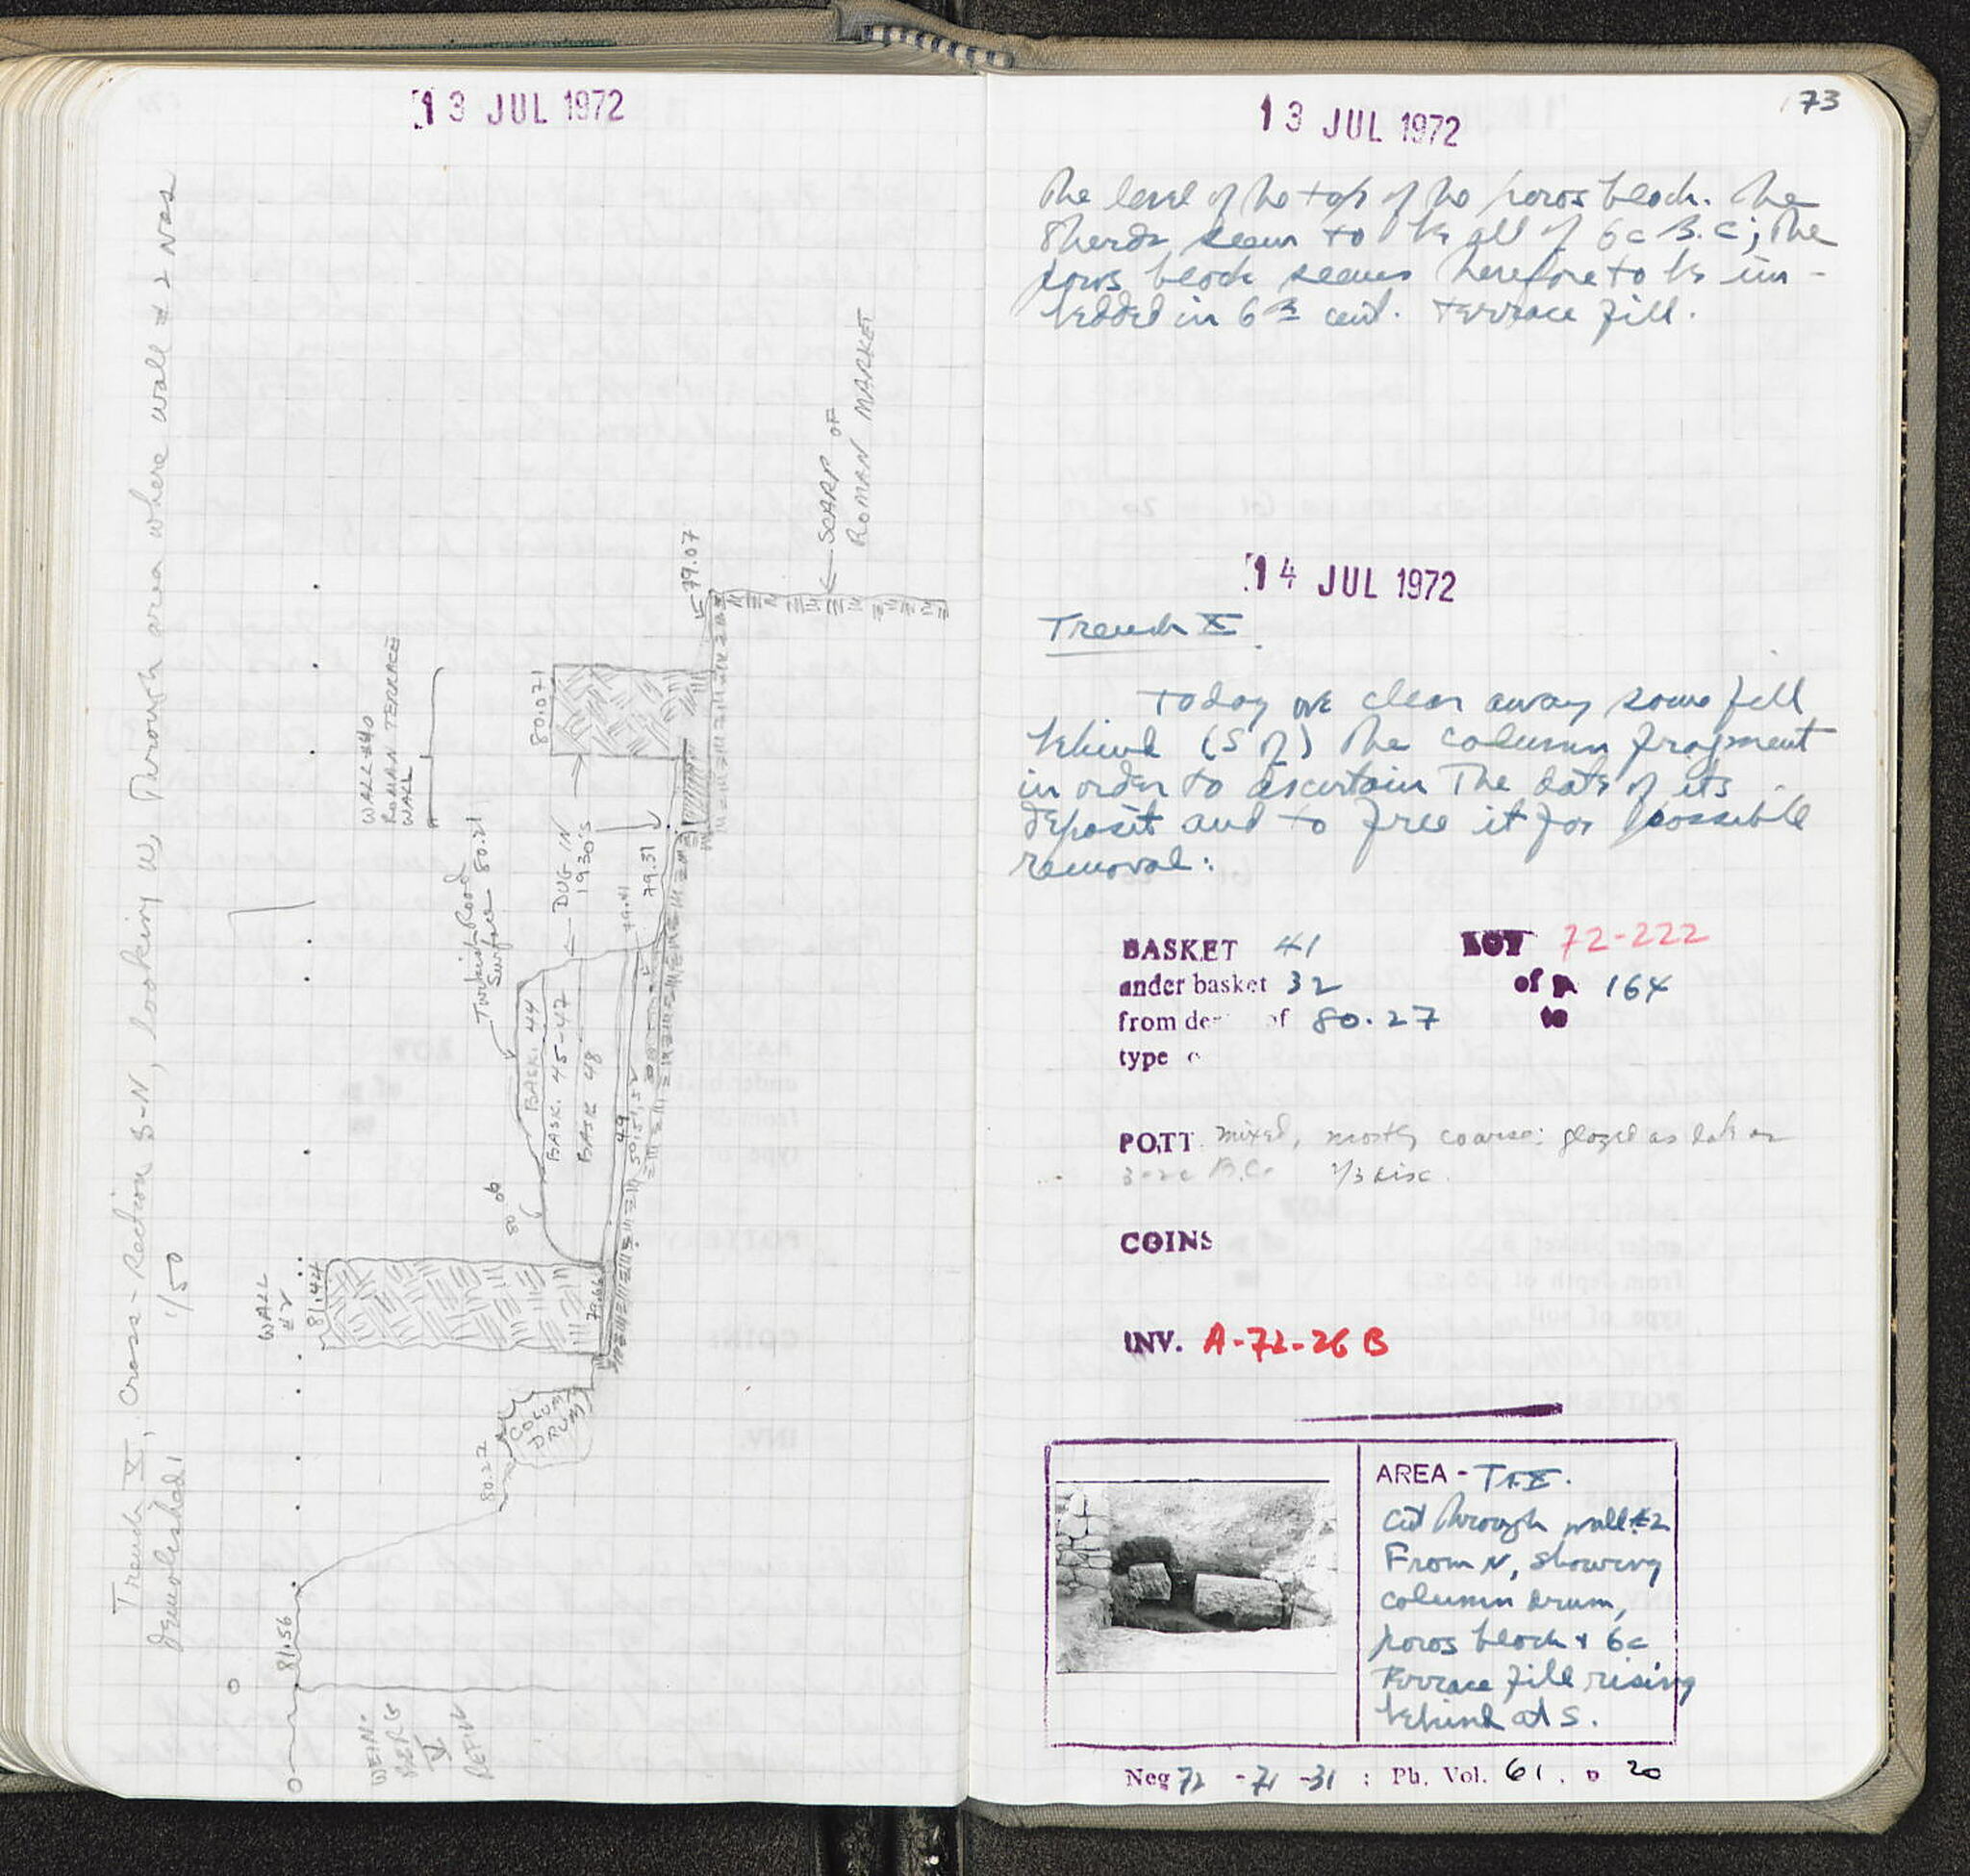 13 JUL 1972
Trench X, Cross-Section S-N, looking W, Through area where wall #2 was
demolished: 1/50
WALL
#2
81.44
81.56
WEIN-
BERG
V
REFILL
80.27
COLUMN
DRUM
79.66
80.06
Turkish Road
Surface 80.21
WALL #40
ROMAN TERRACE
WALL
BASK. 44
BASK. 45-47
BASK 48
49
50, 51, 52
DUG IN
1930'S
79.41
79.31
80.071
79.07
SCARP OF
ROMAN MARKET
13 JUL 1972
173
The level of the top of the poros block. The
sherds seem to be all of 6c B.C; The
poros block seems therefore to be im-
bedded in 6th cent. terrace fill.
14 JUL 1972
Trench X
Today we clear away some fill
behind (S of) the column fragment
in order to ascertain The date of its
deposit and to free it for possible
removal:
BASKET 41 LOT 72-222
under basket 32 of p. 164
from de of 80.27 to
type o
POTT mixed, mostly coarse; glazed as late as
3-2c B.C. 1/3 disc.
COINS
INV. A-72-26 B
AREA - Tr. X.
Cut through wall #2
From N, showing
column drum,
poros block + 6c
Terrace fill rising
behind at S.
Neg 72 - 71 - 31 ; Ph. Vol. 61, p 20